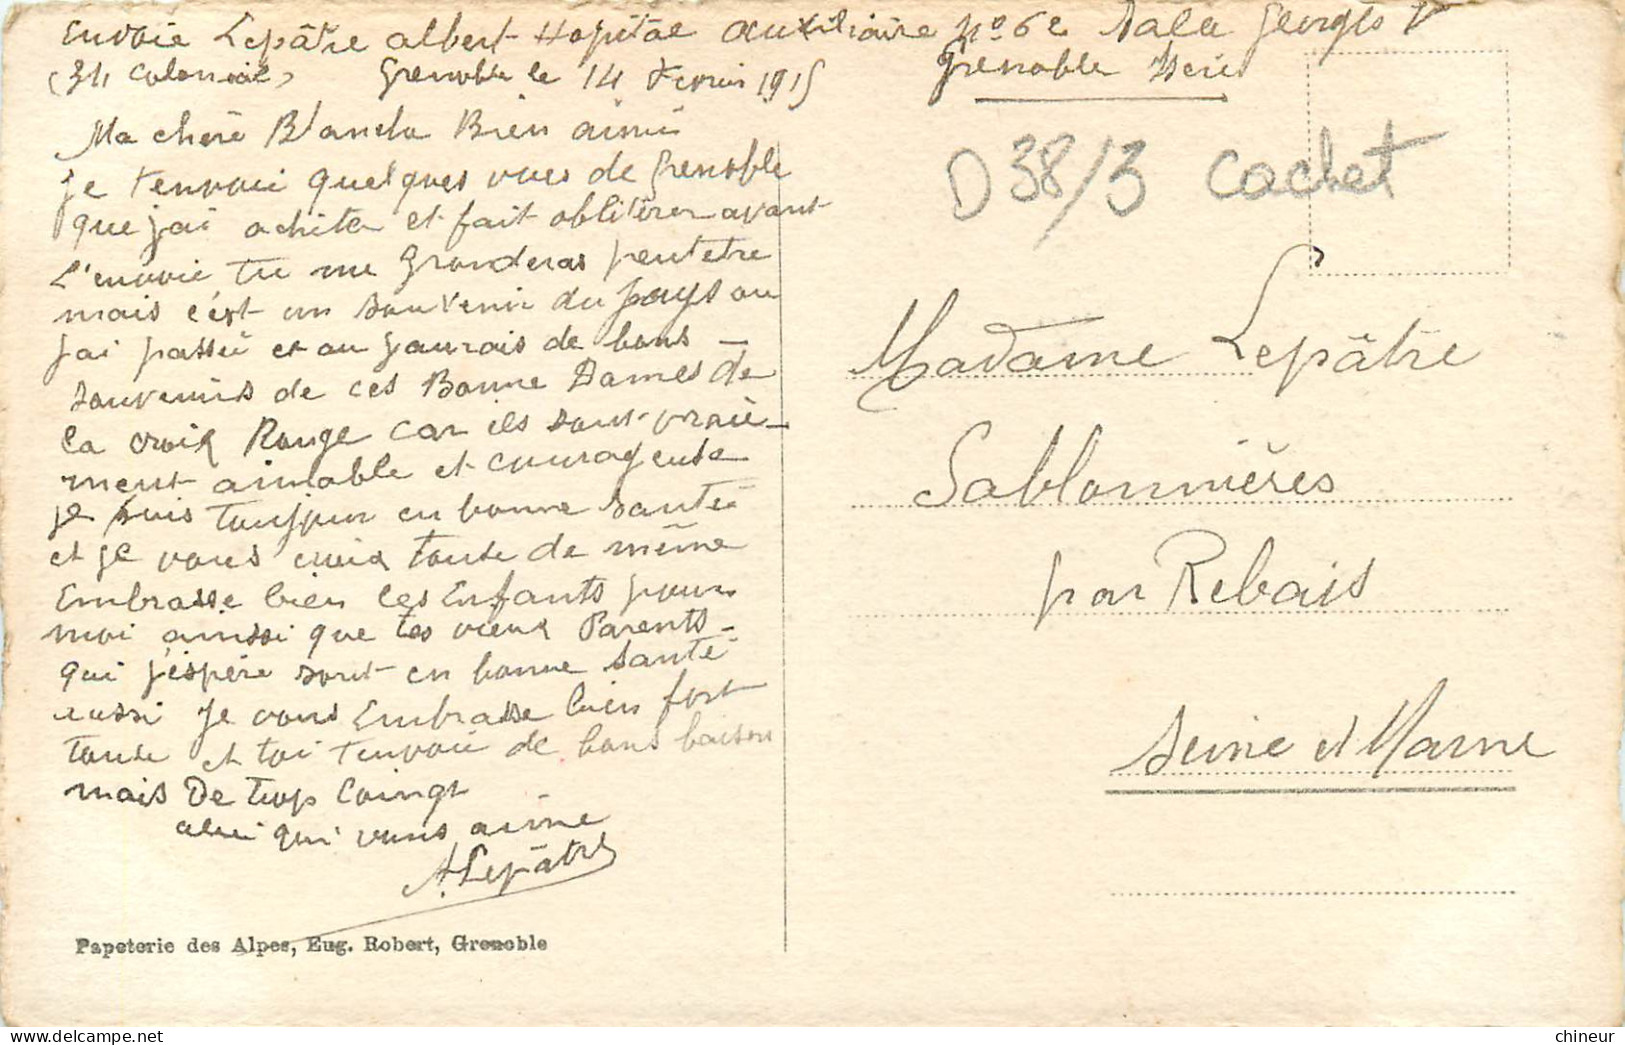 Envoie Lepâtre Albert Hopital Auxiliaire N° 62 Sale Georges V
(34 Colonial) Grenoble le 14 Fevrier 1915
Grenoble Isère
Ma chère Blanche Bien aimé
je t'envoie quelques vues de Grenoble
que j'ai acheter et fait oblitérer avant
L'envoie tu me Gronderas peutetre
mais c'est un souvenir du pays ou
j'ai passé et ou j'aurais de bons
souvenirs de ces Bonne Dames de
la croix Rouge car ils sont vraie-
ment aimable et courageuse
je suis toujour en bonne santé
et je vous crois toute de même
Embrasse bien les Enfants pour
moi ainssi que tes vieux Parents
qui j'éspère sont en bonne santé
aussi je vous Embrasse bien fort
toute et toi t'envoie de bons baisers
mais De trop Loingt
celui qui vous aime
A. Lepâtre
Papeterie des Alpes, Eug. Robert, Grenoble
D 38/3 cachet
Madame Lepâtre
Sablonnières
par Rebais
Seine et Marne
chineur